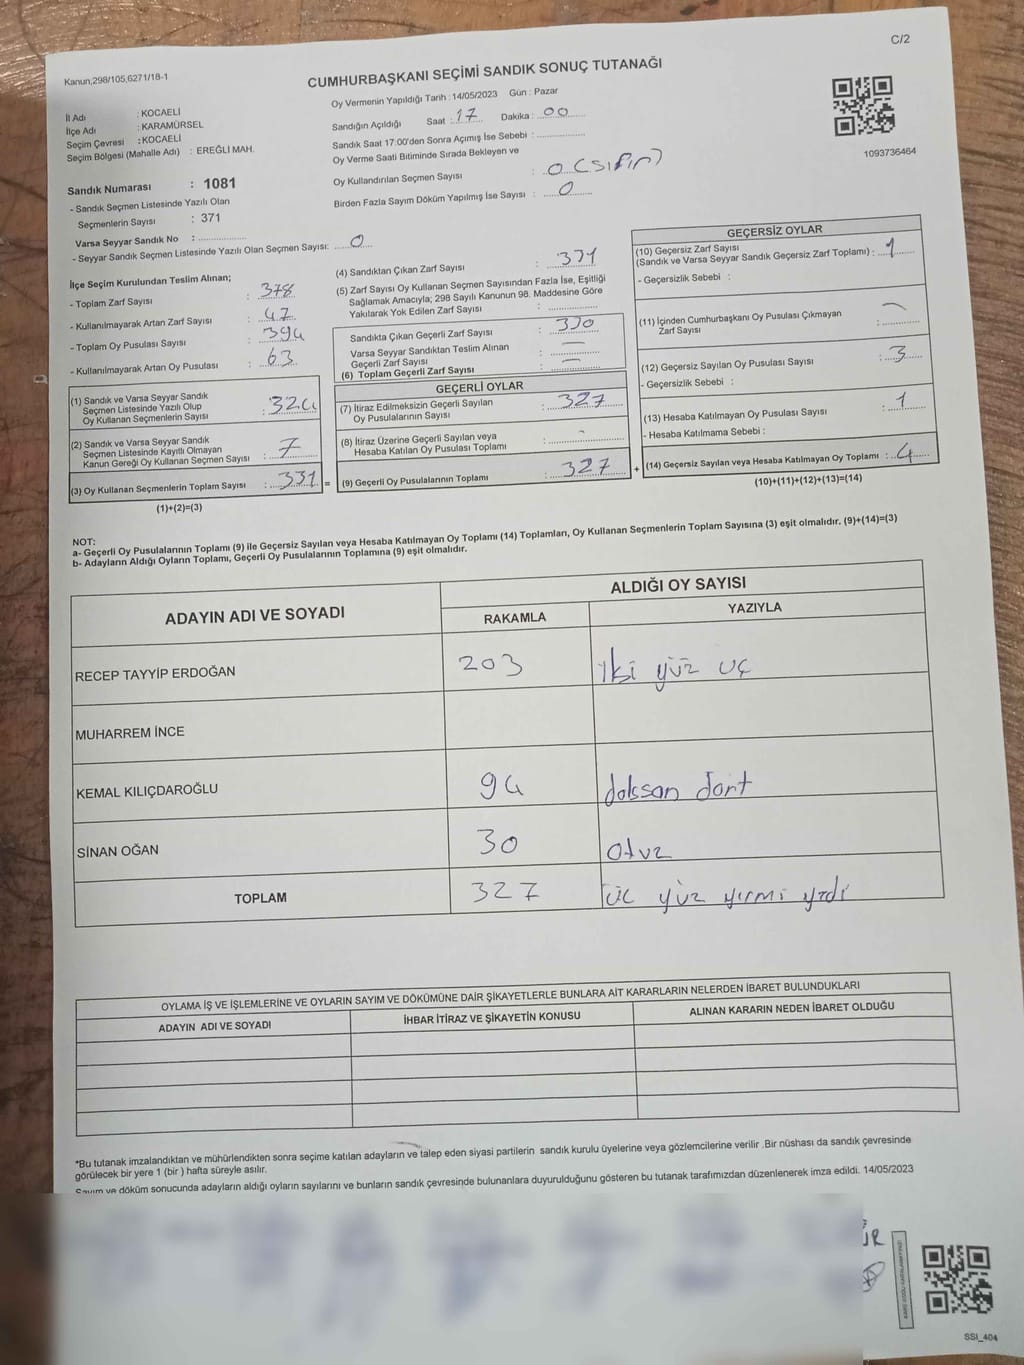 C/2
Kanun,298/105,6271/18-1
CUMHURBAŞKANI SEÇİMİ SANDIK SONUÇ TUTANAĞI
Oy Vermenin Yapıldığı Tarih : 14/05/2023 Gün : Pazar
İl Adı : KOCAELİ
İlçe Adı : KARAMÜRSEL
Seçim Çevresi : KOCAELİ
Seçim Bölgesi (Mahalle Adı) : EREĞLİ MAH.
Sandığın Açıldığı Saat : 17 Dakika : 00
Sandık Saat 17:00'den Sonra Açımış İse Sebebi :
Oy Verme Saati Bitiminde Sırada Bekleyen ve
Oy Kullandırılan Seçmen Sayısı : 0 (sıfır)
Birden Fazla Sayım Döküm Yapılmış İse Sayısı : 0
1093736464
Sandık Numarası : 1081
- Sandık Seçmen Listesinde Yazılı Olan
Seçmenlerin Sayısı : 371
Varsa Seyyar Sandık No :
- Seyyar Sandık Seçmen Listesinde Yazılı Olan Seçmen Sayısı: 0
İlçe Seçim Kurulundan Teslim Alınan;
- Toplam Zarf Sayısı : 378
- Kullanılmayarak Artan Zarf Sayısı : 47
- Toplam Oy Pusulası Sayısı : 394
- Kullanılmayarak Artan Oy Pusulası : 63
(1) Sandık ve Varsa Seyyar Sandık
Seçmen Listesinde Yazılı Olup
Oy Kullanan Seçmenlerin Sayısı : 324
(2) Sandık ve Varsa Seyyar Sandık
Seçmen Listesinde Kayıtlı Olmayan
Kanun Gereği Oy Kullanan Seçmen Sayısı : 7
(3) Oy Kullanan Seçmenlerin Toplam Sayısı : 331 =
(1)+(2)=(3)
(4) Sandıktan Çıkan Zarf Sayısı : 331
(5) Zarf Sayısı Oy Kullanan Seçmen Sayısından Fazla İse, Eşitliği
Sağlamak Amacıyla; 298 Sayılı Kanunun 98. Maddesine Göre
Yakılarak Yok Edilen Zarf Sayısı :
Sandıkta Çıkan Geçerli Zarf Sayısı : 330
Varsa Seyyar Sandıktan Teslim Alınan
Geçerli Zarf Sayısı : —
(6) Toplam Geçerli Zarf Sayısı : —
GEÇERLİ OYLAR
(7) İtiraz Edilmeksizin Geçerli Sayılan
Oy Pusulalarının Sayısı : 327
(8) İtiraz Üzerine Geçerli Sayılan veya
Hesaba Katılan Oy Pusulası Toplamı : -
(9) Geçerli Oy Pusulalarının Toplamı : 327 +
GEÇERSİZ OYLAR
(10) Geçersiz Zarf Sayısı
(Sandık ve Varsa Seyyar Sandık Geçersiz Zarf Toplamı) : 1
- Geçersizlik Sebebi :
(11) İçinden Cumhurbaşkanı Oy Pusulası Çıkmayan
Zarf Sayısı : —
(12) Geçersiz Sayılan Oy Pusulası Sayısı : 3
- Geçersizlik Sebebi :
(13) Hesaba Katılmayan Oy Pusulası Sayısı : 1
- Hesaba Katılmama Sebebi :
(14) Geçersiz Sayılan veya Hesaba Katılmayan Oy Toplamı : 4
(10)+(11)+(12)+(13)=(14)
NOT:
a- Geçerli Oy Pusulalarının Toplamı (9) ile Geçersiz Sayılan veya Hesaba Katılmayan Oy Toplamı (14) Toplamları, Oy Kullanan Seçmenlerin Toplam Sayısına (3) eşit olmalıdır. (9)+(14)=(3)
b- Adayların Aldığı Oyların Toplamı, Geçerli Oy Pusulalarının Toplamına (9) eşit olmalıdır.
ADAYIN ADI VE SOYADI
ALDIĞI OY SAYISI
RAKAMLA YAZIYLA
RECEP TAYYİP ERDOĞAN 203 iki yüz üç
MUHARREM İNCE
KEMAL KILIÇDAROĞLU 94 doksan dört
SİNAN OĞAN 30 otuz
TOPLAM 327 üç yüz yirmi yedi
OYLAMA İŞ VE İŞLEMLERİNE VE OYLARIN SAYIM VE DÖKÜMÜNE DAİR ŞİKAYETLERLE BUNLARA AİT KARARLARIN NELERDEN İBARET BULUNDUKLARI
ADAYIN ADI VE SOYADI İHBAR İTİRAZ VE ŞİKAYETİN KONUSU ALINAN KARARIN NEDEN İBARET OLDUĞU
*Bu tutanak imzalandıktan ve mühürlendikten sonra seçime katılan adayların ve talep eden siyasi partilerin sandık kurulu üyelerine veya gözlemcilerine verilir .Bir nüshası da sandık çevresinde
görülecek bir yere 1 (bir ) hafta süreyle asılır.
Sayım ve döküm sonucunda adayların aldığı oyların sayılarını ve bunların sandık çevresinde bulunanlara duyurulduğunu gösteren bu tutanak tarafımızdan düzenlenerek imza edildi. 14/05/2023
SSI_404